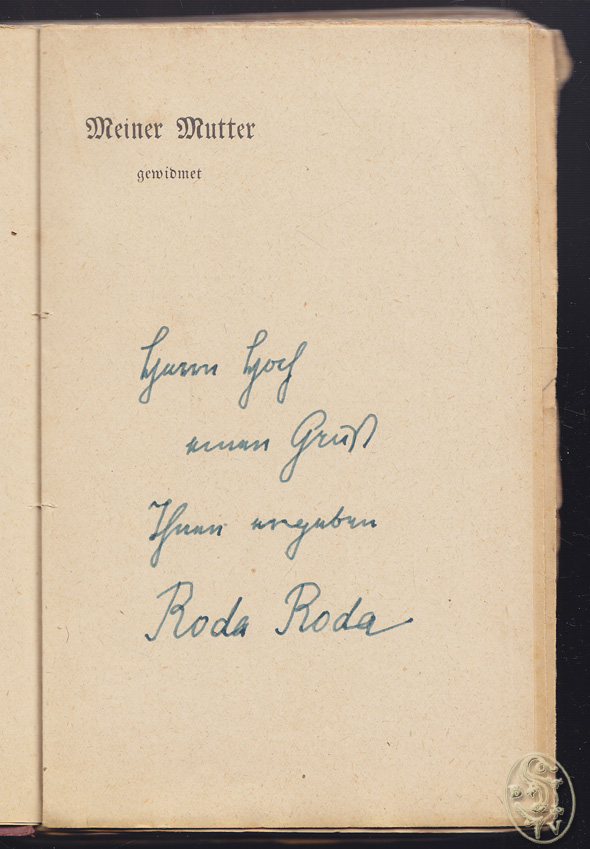 Meiner Mutter
gewidmet
Herrn Hoch
einen Gruß
Ihnen ergeben
Roda Roda